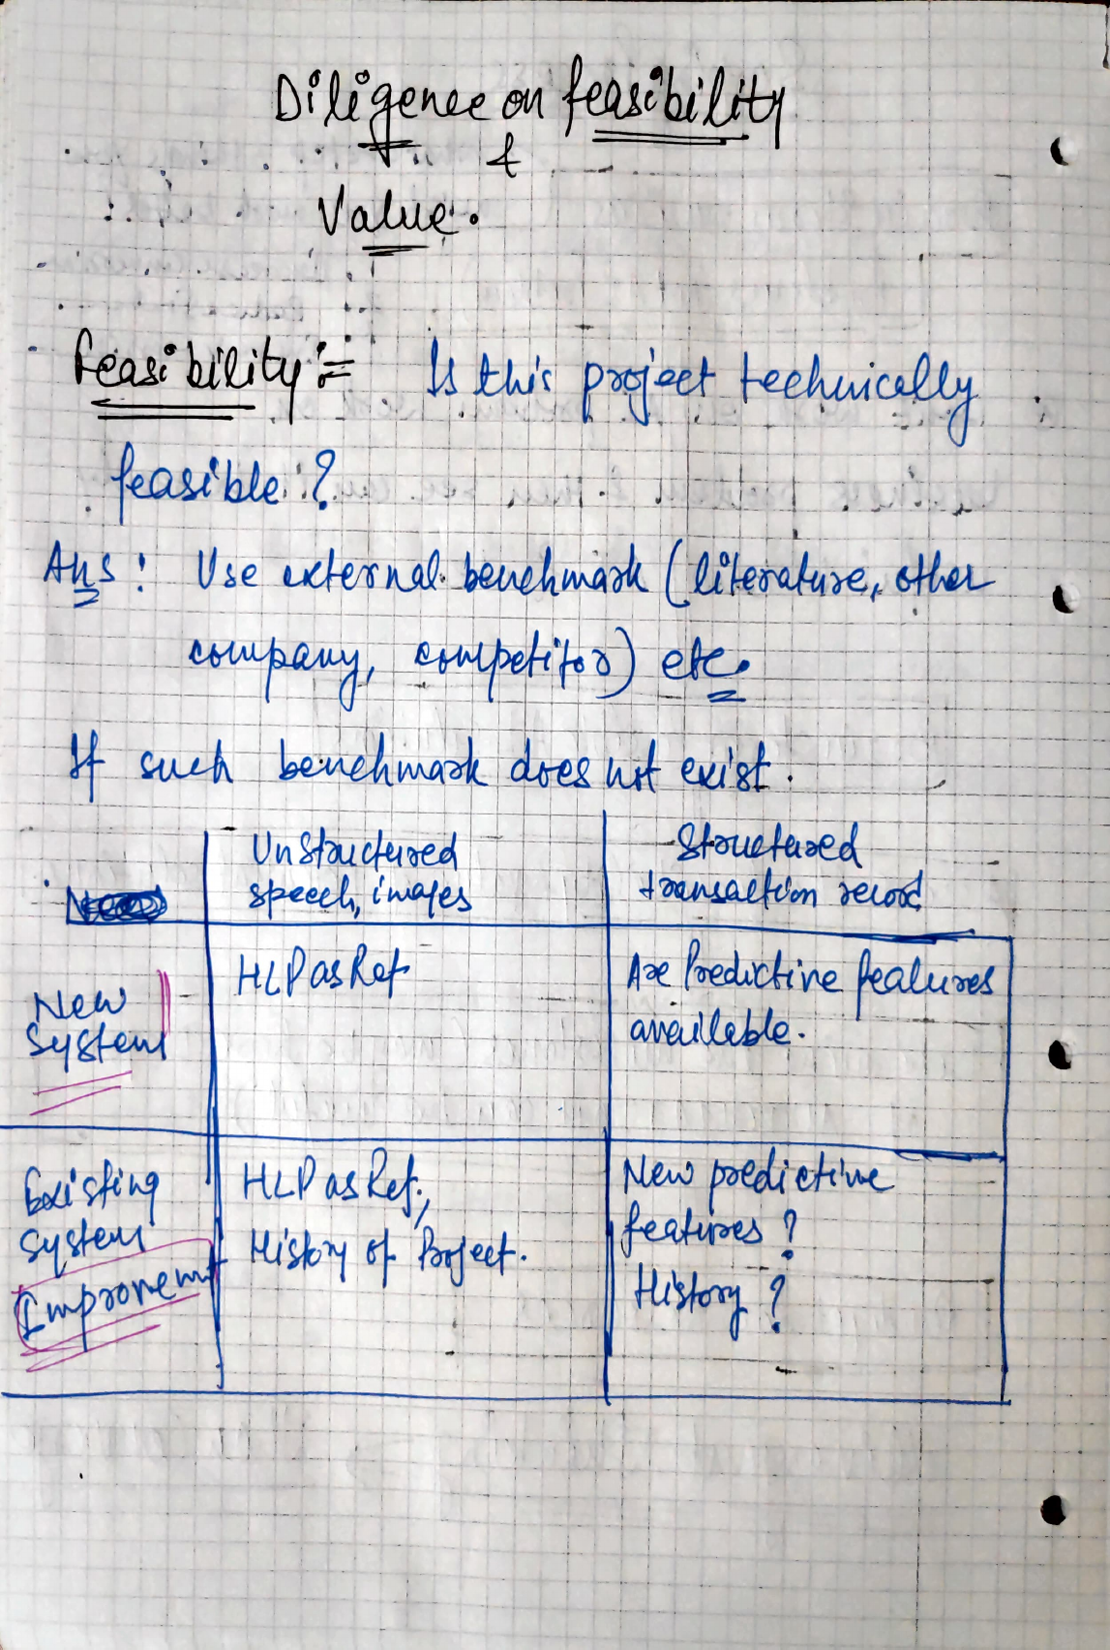 Diligence on feasibility
&
Value.
Feasibility := Is this project technically
feasible ?
Ans : Use external benchmark (literature, other
company, competitor) etc.
If such benchmark does not exist.
Unstructured
speech, images
Structured
transaction record
New
System
HLP as Ref
Are Predictive features
available.
Existing
System
Improvemt
HLP as Ref.,
History of Project.
New predictive
features ?
History ?